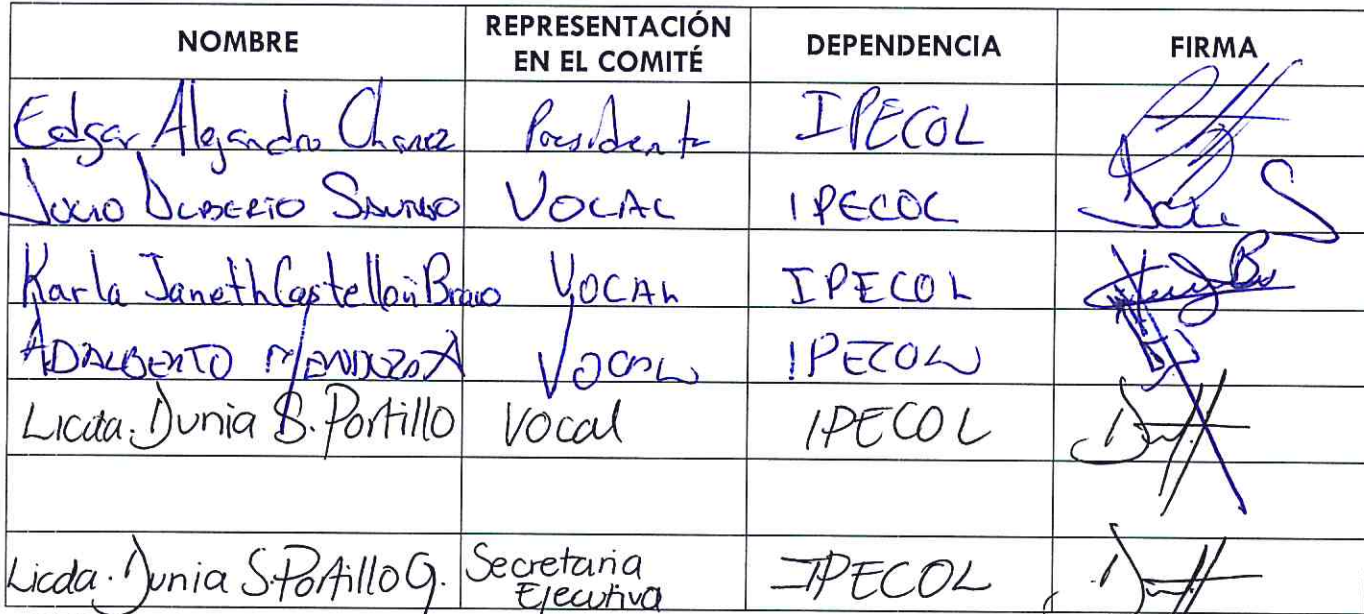 NOMBRE REPRESENTACIÓN EN EL COMITÉ DEPENDENCIA FIRMA
Edgar Alejandro Chavez Presidente IPECOL
Julio Alberto VOCAL IPECOL
Karla Janeth Castellón Bravo VOCAL IPECOL
ADALBERTO MENDOZA VOCAL IPECOL
Licda. Dunia S. Portillo Vocal IPECOL
Licda. Dunia S. Portillo G. Secretaria Ejecutiva IPECOL